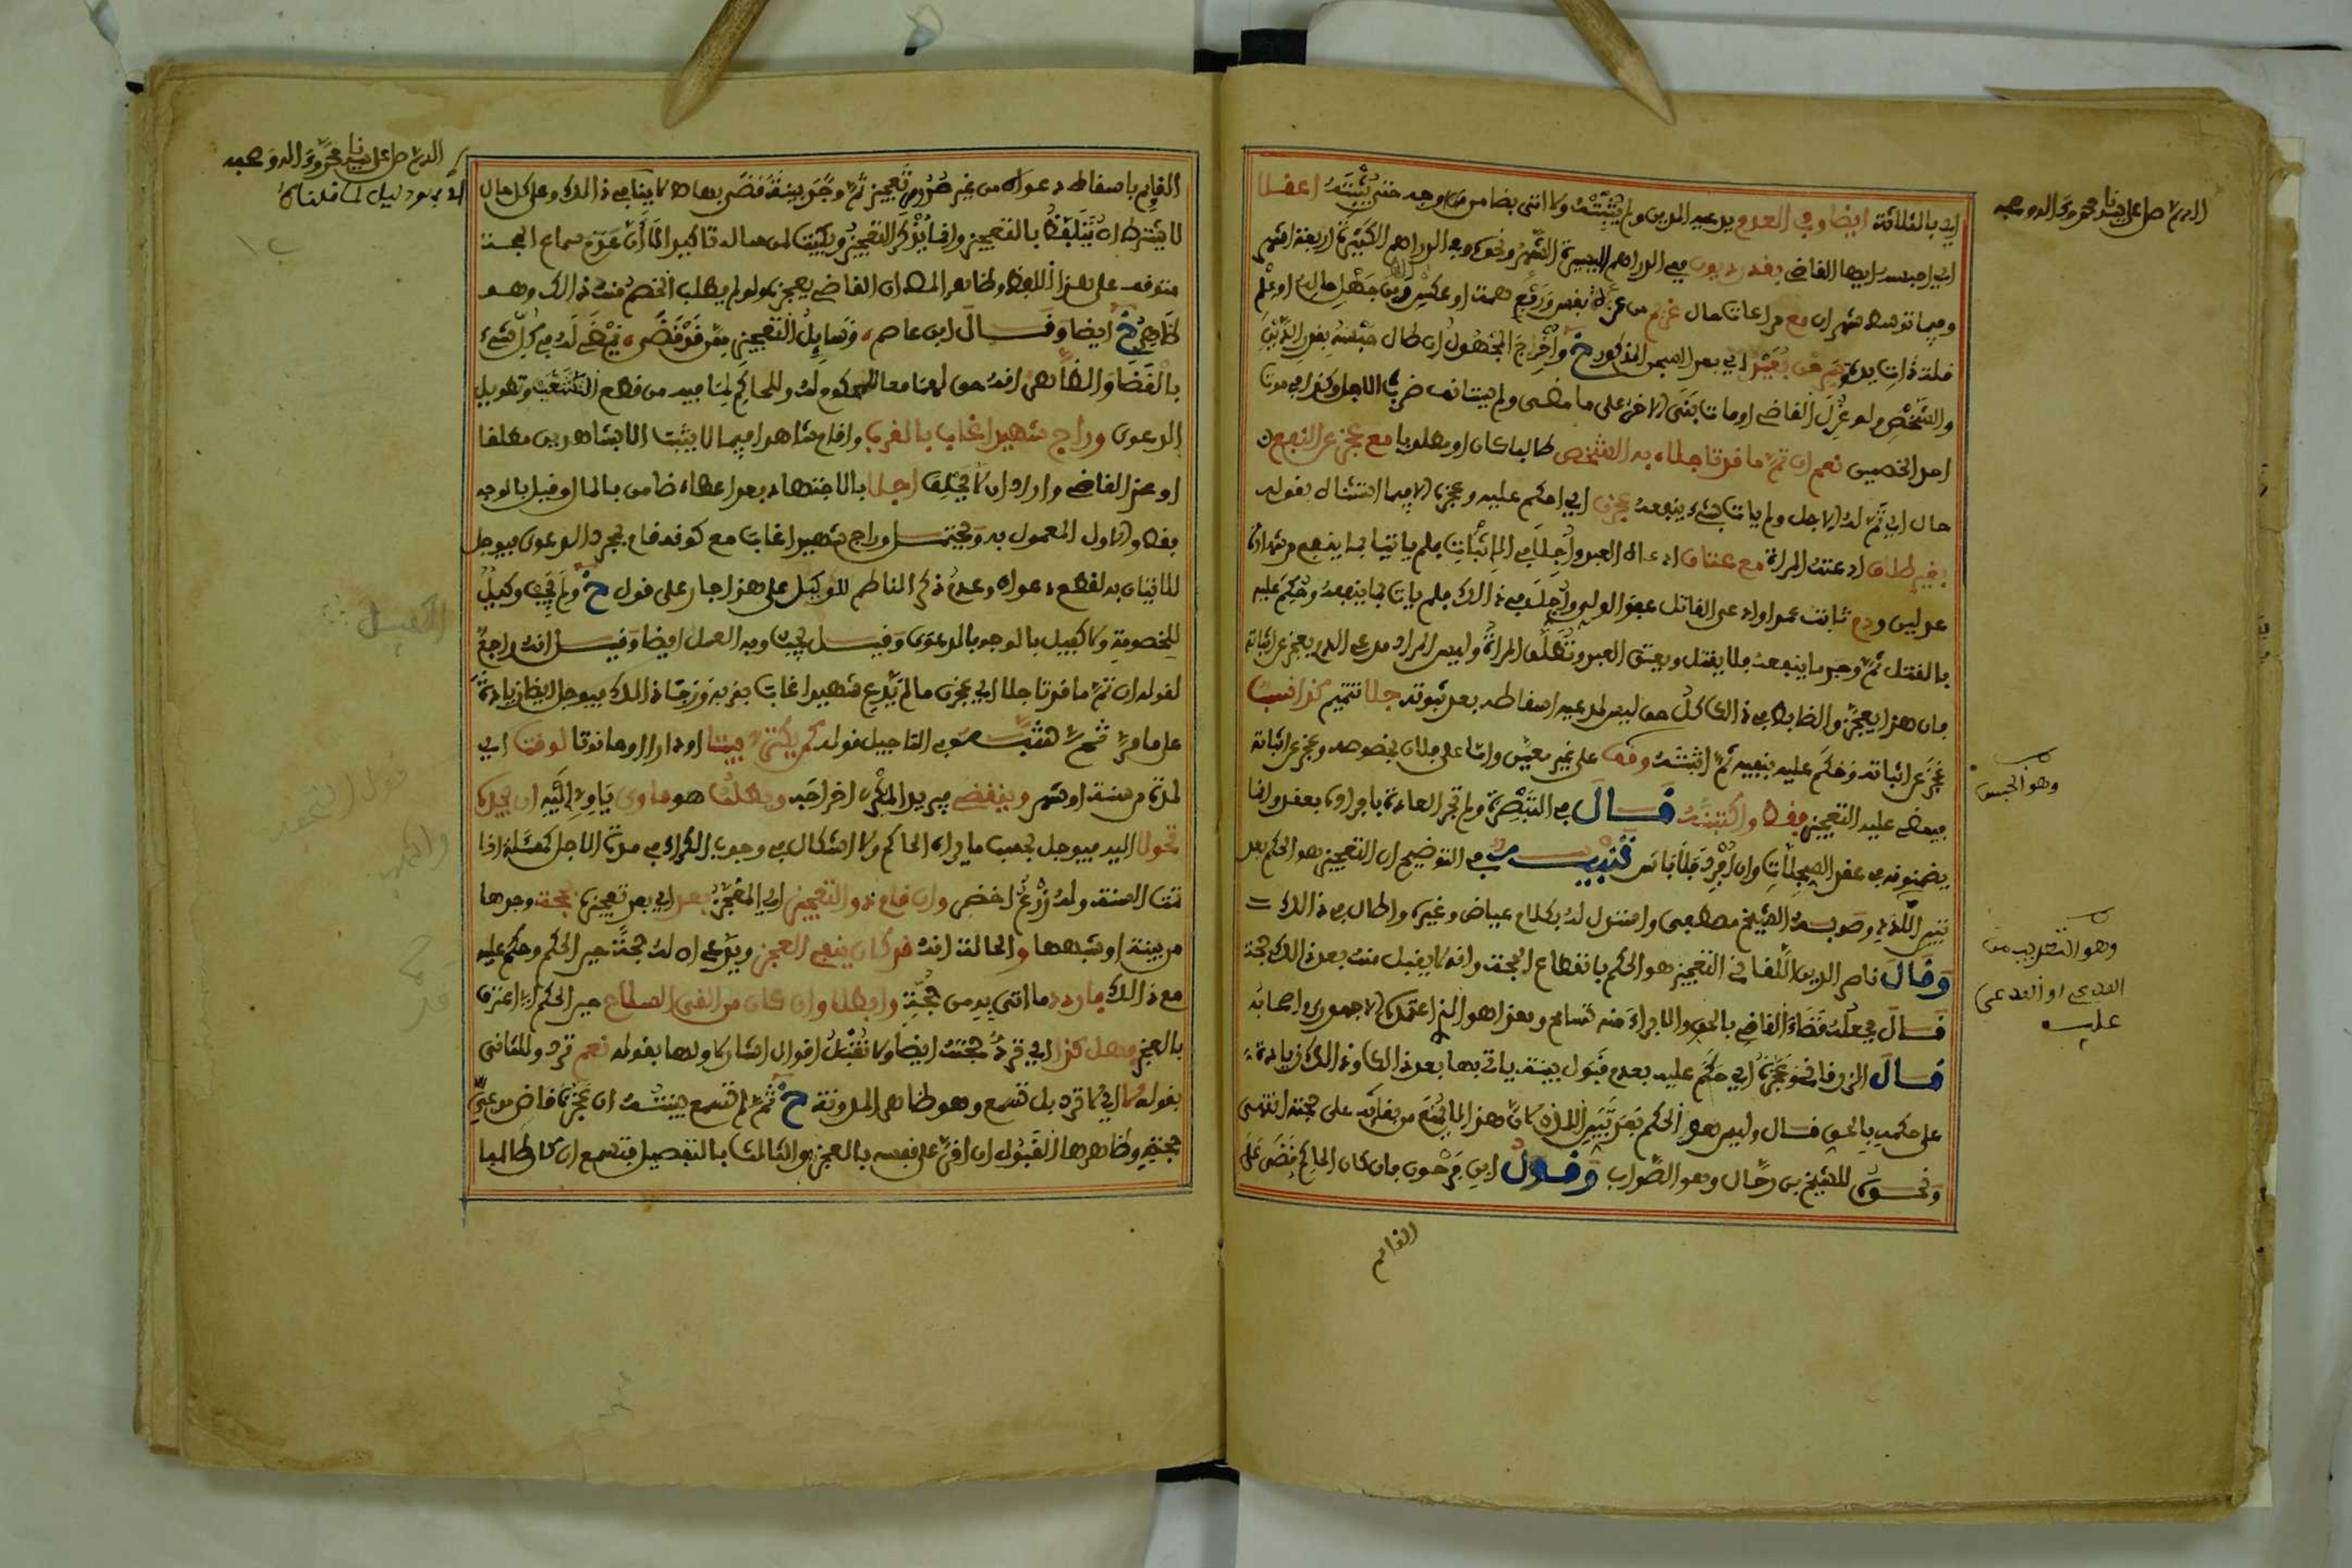 اللهم صل على سيدنا محمد وآله وصحبه
ايد بالثلاثة ايضا وفي العدم يدعيه المدين ولم يثبته ولا اتى بضامن من وجه حتى يثبته اعفلا
اي احبسه ايها القاضي بقدر ديون ففي الدراهم اليسيرة الشهر ونحوه وفي الدراهم الكثيرة اربعة اشهر
وفيما توسط شهران مع مراعات حال غريم من عزة نفس ورفع همة او عكس وبين جهل حاله او علم
قلة ذات يده ثم من بعد اي بعد السجن المذكور خ واخرج المجهول ان طال حبسه بقدر الدين
والشخص ولو عزل القاضي او مات بنى الاخر على ما مضى ولم يستانف ضرب الاجل وكذا في موت
احد الخصمين نعم ان تم ما قد تاجلا به الشخص طالبا كان او مطلوبا مع عجز عن النفع
حال اي تم له الاجل ولم يات بشيء ينفعه عجزن اي احكم عليه وعجزه الا فيما استثناه بقوله
بغير طلاق ادعته المراة مع عتاق ادعاه العبد واجلا في الاثبات فلم ياتيا بما ينفع من شهادة
عدلين ودم ثابت عمدا وادعى القاتل عفو الولي واجل في ذالك فلم يات بما ينفعه وحكم عليه
بالقتل ثم وجد ما ينفعه فلا يقتل ويعتق العبد وتطلق المراة وليس المراد مدعي الدم يعجز عن اثباته
فان هذا يعجز والضابط في ذالك كل حق ليس لمدعيه اسقاطه بعد ثبوته جلا تتميم كذا نسب
عجز عن اثباته وحكم عليه بنفيه ثم اثبته وقف على غير معين واما على فلان بخصوصه وعجز عن اثباته
فيمضي عليه التعجيز فقط واكتبنه قال في التبصرة ولم تجر العادة بافراده بعقد وانما
يضمنونه في عقد السجلات وان افرد فلا باس تنبيه في التوضيح ان التعجيز هو الحكم بعد
تبين اللدد وصوبه الشيخ مصطفى واستدل له بكلام عياض وغيره واطال في ذالك
وقال ناصر الدين اللقاني التعجيز هو الحكم بانقطاع الحجة وانه لا يقبل منه بعد ذالك حجة
قال فجعله قضاء القاضي بالحق والابراء منه تسامح وهذا هو الذي اعتمده الاجهوري واصحابه
قال الزرقاني وعجزه اي حكم عليه بعدم قبول بينة ياتي بها بعد ذالك وذالك زيادة
على حكمه بالحق قال وليس هو الحكم بعد تبين اللدد لان هذا لا يمنع من بقائه على حجته انتهى
ونحوه للشيخ بن رحال وهو الصواب وقول ابن فرحون فان كان الحاكم قضى على
القائم
وهو الحبس
وهو التقريب من
المدعي او المدعى
عليه
اللهم صل على سيدنا محمد وآله وصحبه
القائم باسقاط دعواه من غير صدور تعجيز ثم وجد بينة قضى بها لا ينافي ذالك وعلى كل حال
لا يشترط ان يتلفظ بالتعجيز وانما يذكر التعجيز ويكتب لمن ساله تاكيدا لا ان عدم سماع الحجة
متوقف على هذا اللفظ وظاهر المص ان القاضي يعجزه ولو لم يطلب الخصم منه ذالك وهو
ظاهر خ ايضا وقال ابن عاصم وسائل التعجيز ممن قد قضى يمضى له في كل شيء
بالقضا والظاهر انه حق لهما معا للمحكوم له وللحاكم لما فيه من قطع التشغيب وتطويل
الدعوى وراج شهيدا غاب بالقرب واقام شاهدا فيما لا يثبت الا بشاهدين مطلقا
او عند القاضي واراد ان لا يحلف اجلا بالاجتهاد بعد اعطاء ضامن بالمال وقيل بالوجه
فقط والاول المعمول به ويحتمل وراج شهيدا غاب مع كونه قام بمجرد الدعوى فيوجل
للاتيان به لقطع دعواه وعدم ذكر الناظم للوكيل على هذا جار على قول خ ولم يجب وكيل
للخصومة ولا كفيل بالوجه بالدعوى وقيل يجب وبه العمل ايضا وقيل انه راجع
لقوله ان تم ما قد تاجلا اي عجزن ما لم يدع شهيدا غاب بقرب ورجا ذالك فيوجل ايضا زيادة
على ما مر ثم شبه في التاجيل قوله كمكتري بيتا او دارا او حانوتا لوقت اي
لمدة من سنة او شهر وينقضي فيريد المكري اخراجه ويطلب هو ماوى ياوي اليه ان يجد
تحولا اليه فيوجل بحسب ما يراه الحاكم ولا اشكال في وجوب الكراء في مدة الاجل كمسئلة اذا
تمت السنة وله زرع اخضر وان قام ذو التعجيز اي المعجز بعد اي بعد تعجيزه بحجة وجدها
من بينة او شبهها والحالة انه قد كان ينفي العجز ويدعي ان له حجة حين الحكم وحكم عليه
مع ذالك فاردد ما اتى به من حجة وابطلا وان كان من القى السلاح حين الحكم اي اعترف
بالعجز فهل كذا اي ترد حجته ايضا ولا تقبل اقوال اشار لاولها بقوله نعم ترد وللثاني
بقوله لا اي لا ترد بل تسمع وهو ظاهر المدونة خ ثم لم تسمع بينته ان عجزه قاض مدعي
حجة وظاهرها القبول ان اقر على نفسه بالعجز والثالث بالتفصيل فتسمع ان كان طالبا